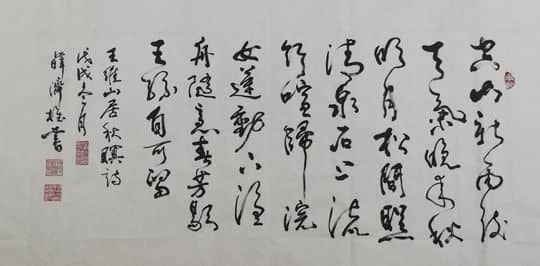 空山新雨後
天氣晚来秋
明月松間照
清泉石上流
竹喧歸浣
女蓮動下漁
舟隨意春芳歇
王孫自可留
王維山居秋暝詩
戊戌冬月
濟 書